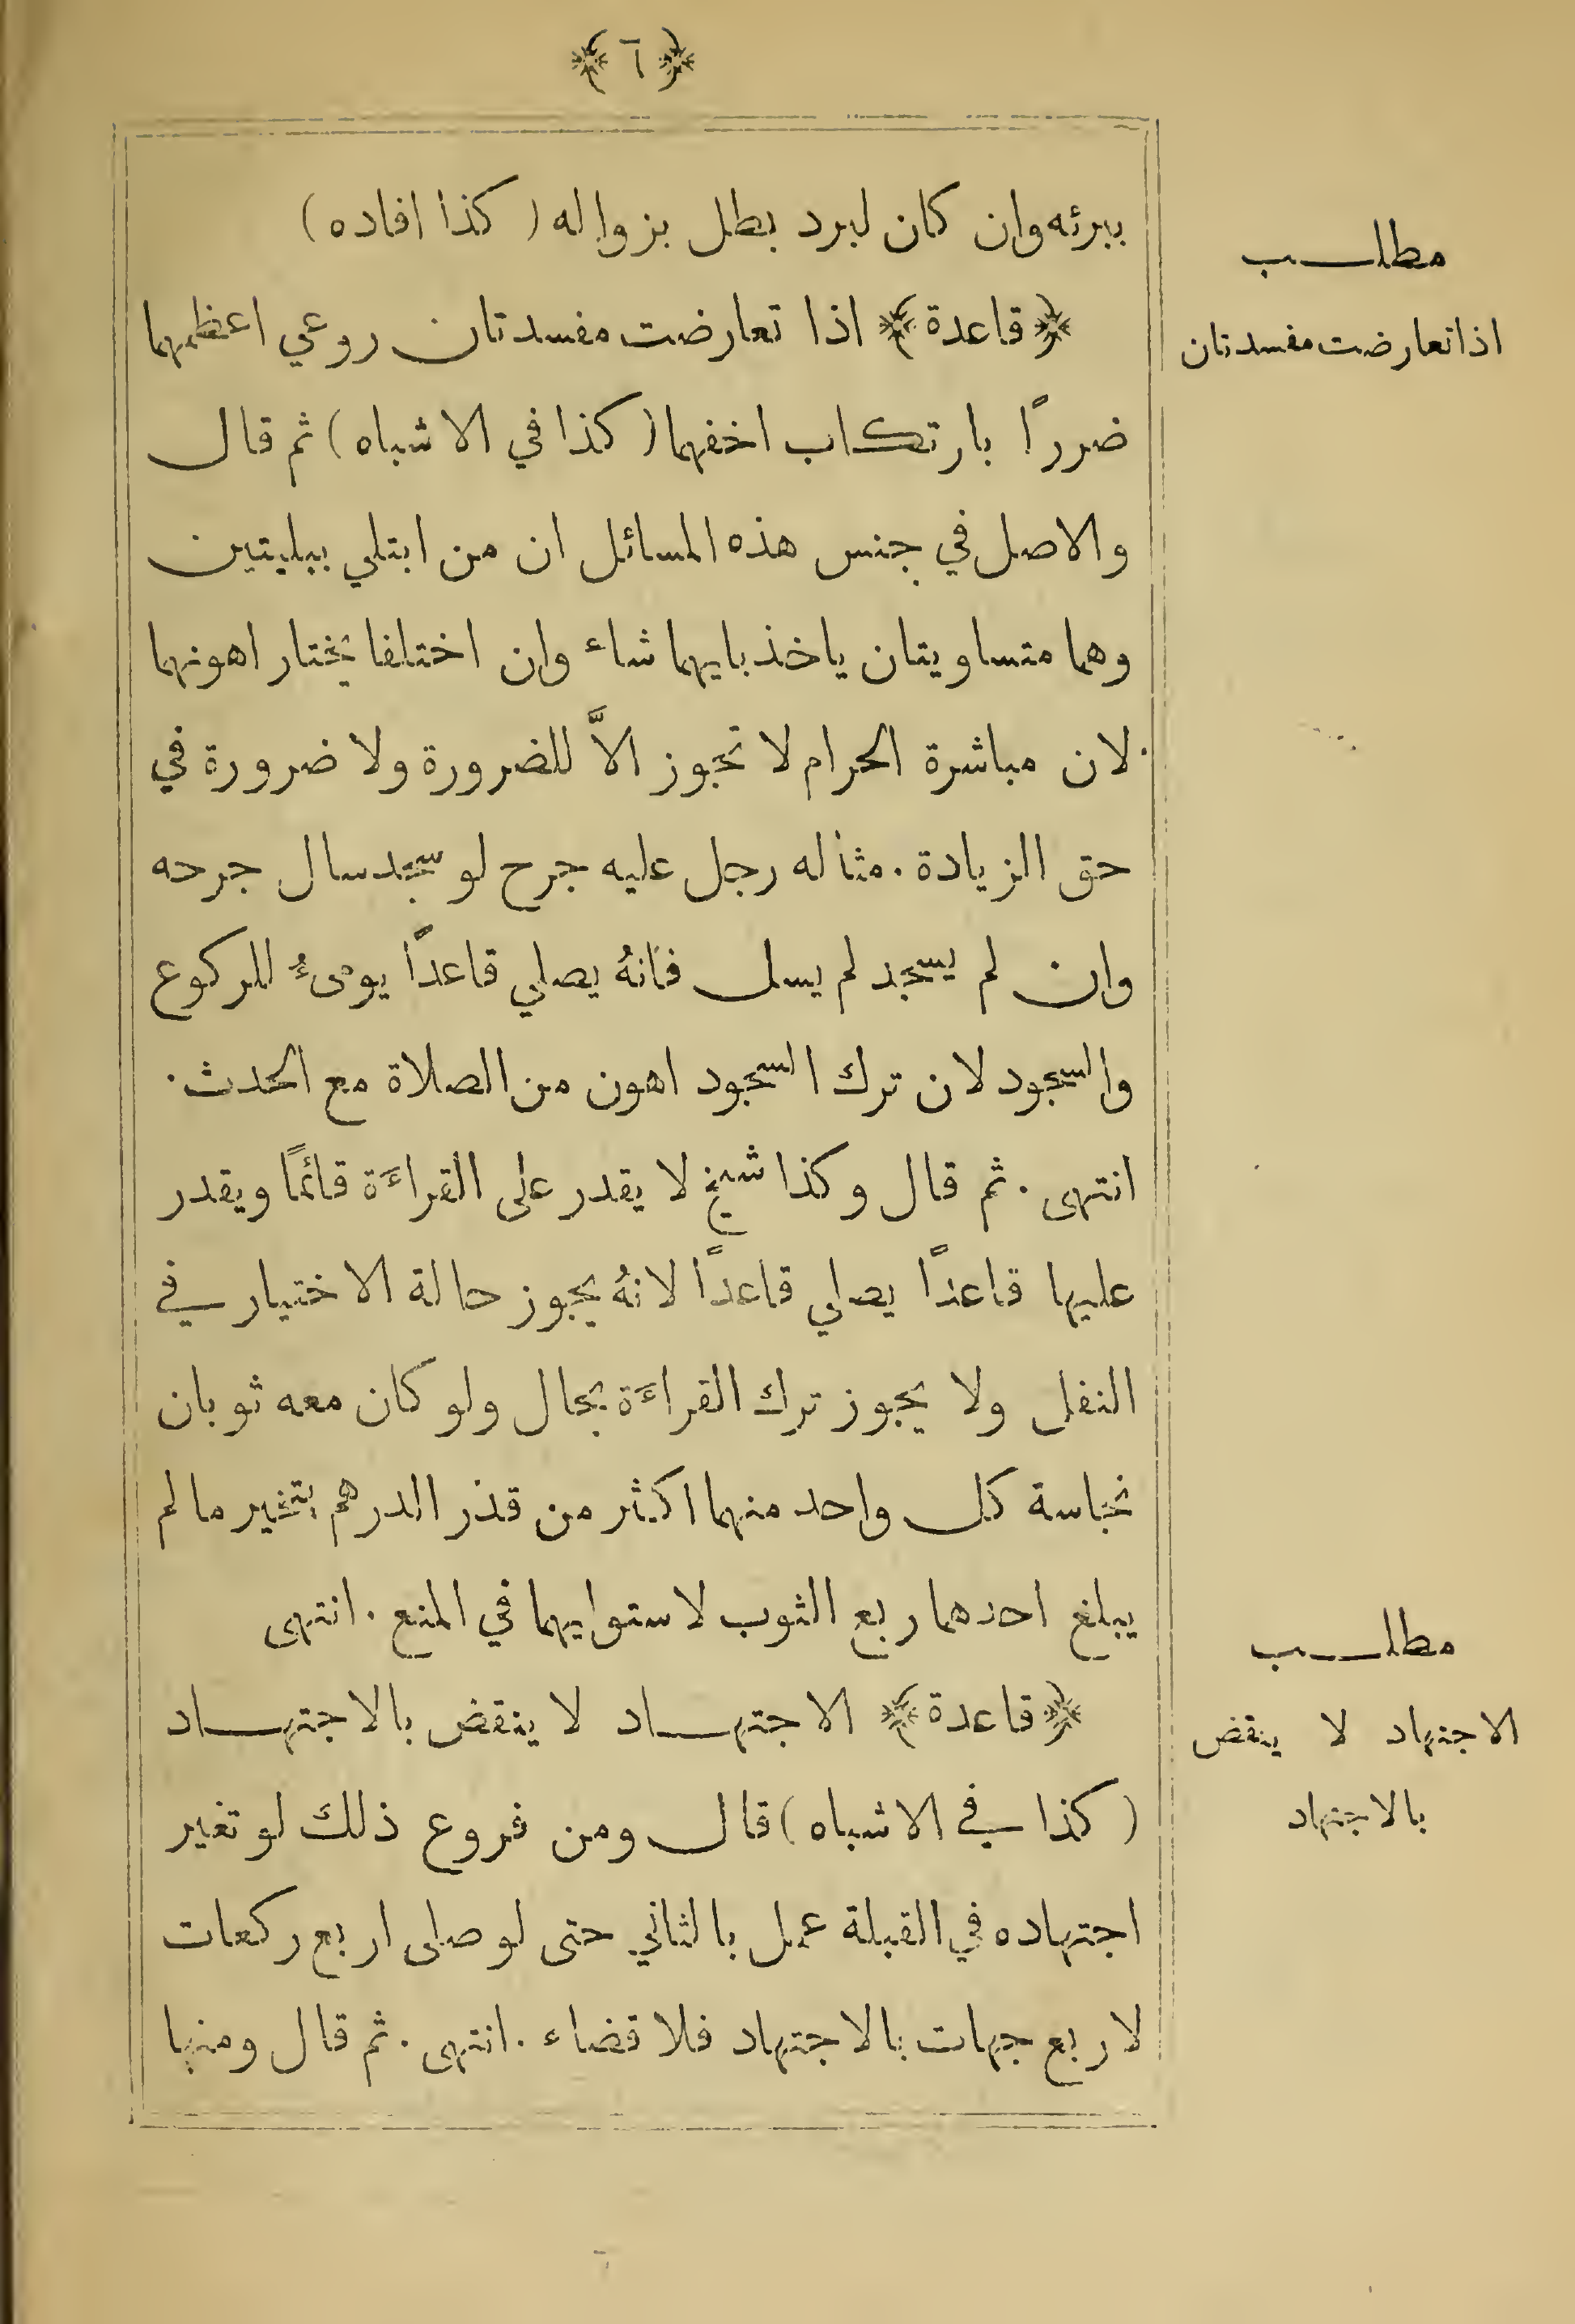 ﴿ ٦ ﴾
ببرئه وان كان لبرد بطل بزواله ( كذا افاده )
مطلب
اذا تعارضت مفسدتان
﴿ قاعدة ﴾ اذا تعارضت مفسدتان روعي اعظمهما
ضررًا بارتكاب اخفهما ( كذا في الاشباه ) ثم قال
والاصل في جنس هذه المسائل ان من ابتلي ببليتين
وهما متساويتان ياخذ بايهما شاء وان اختلفا يختار اهونهما
لان مباشرة الحرام لا تجوز الاَّ للضرورة ولا ضرورة في
حق الزيادة . مثاله رجل عليه جرح لو سجد سال جرحه
وان لم يسجد لم يسل فانهُ يصلي قاعدًا يومىءُ للركوع
والسجود لان ترك السجود اهون من الصلاة مع الحدث .
انتهى . ثم قال وكذا شيخ لا يقدر على القراءَة قائمًا ويقدر
عليها قاعدًا يصلي قاعدًا لانهُ يجوز حالة الاختيار في
النفل ولا يجوز ترك القراءَة بحال ولو كان معه ثوبان
نجاسة كل واحد منهما اكثر من قدر الدرهم يتخير ما لم
يبلغ احدهما ربع الثوب لاستوايهما في المنع . انتهى
مطلب
الاجتهاد لا ينقض
بالاجتهاد
﴿ قاعدة ﴾ الاجتهاد لا ينقض بالاجتهاد
( كذا في الاشباه ) قال ومن فروع ذلك لو تغير
اجتهاده في القبلة عمل بالثاني حتى لو صلى اربع ركعات
لاربع جهات بالاجتهاد فلا قضاء . انتهى . ثم قال ومنها